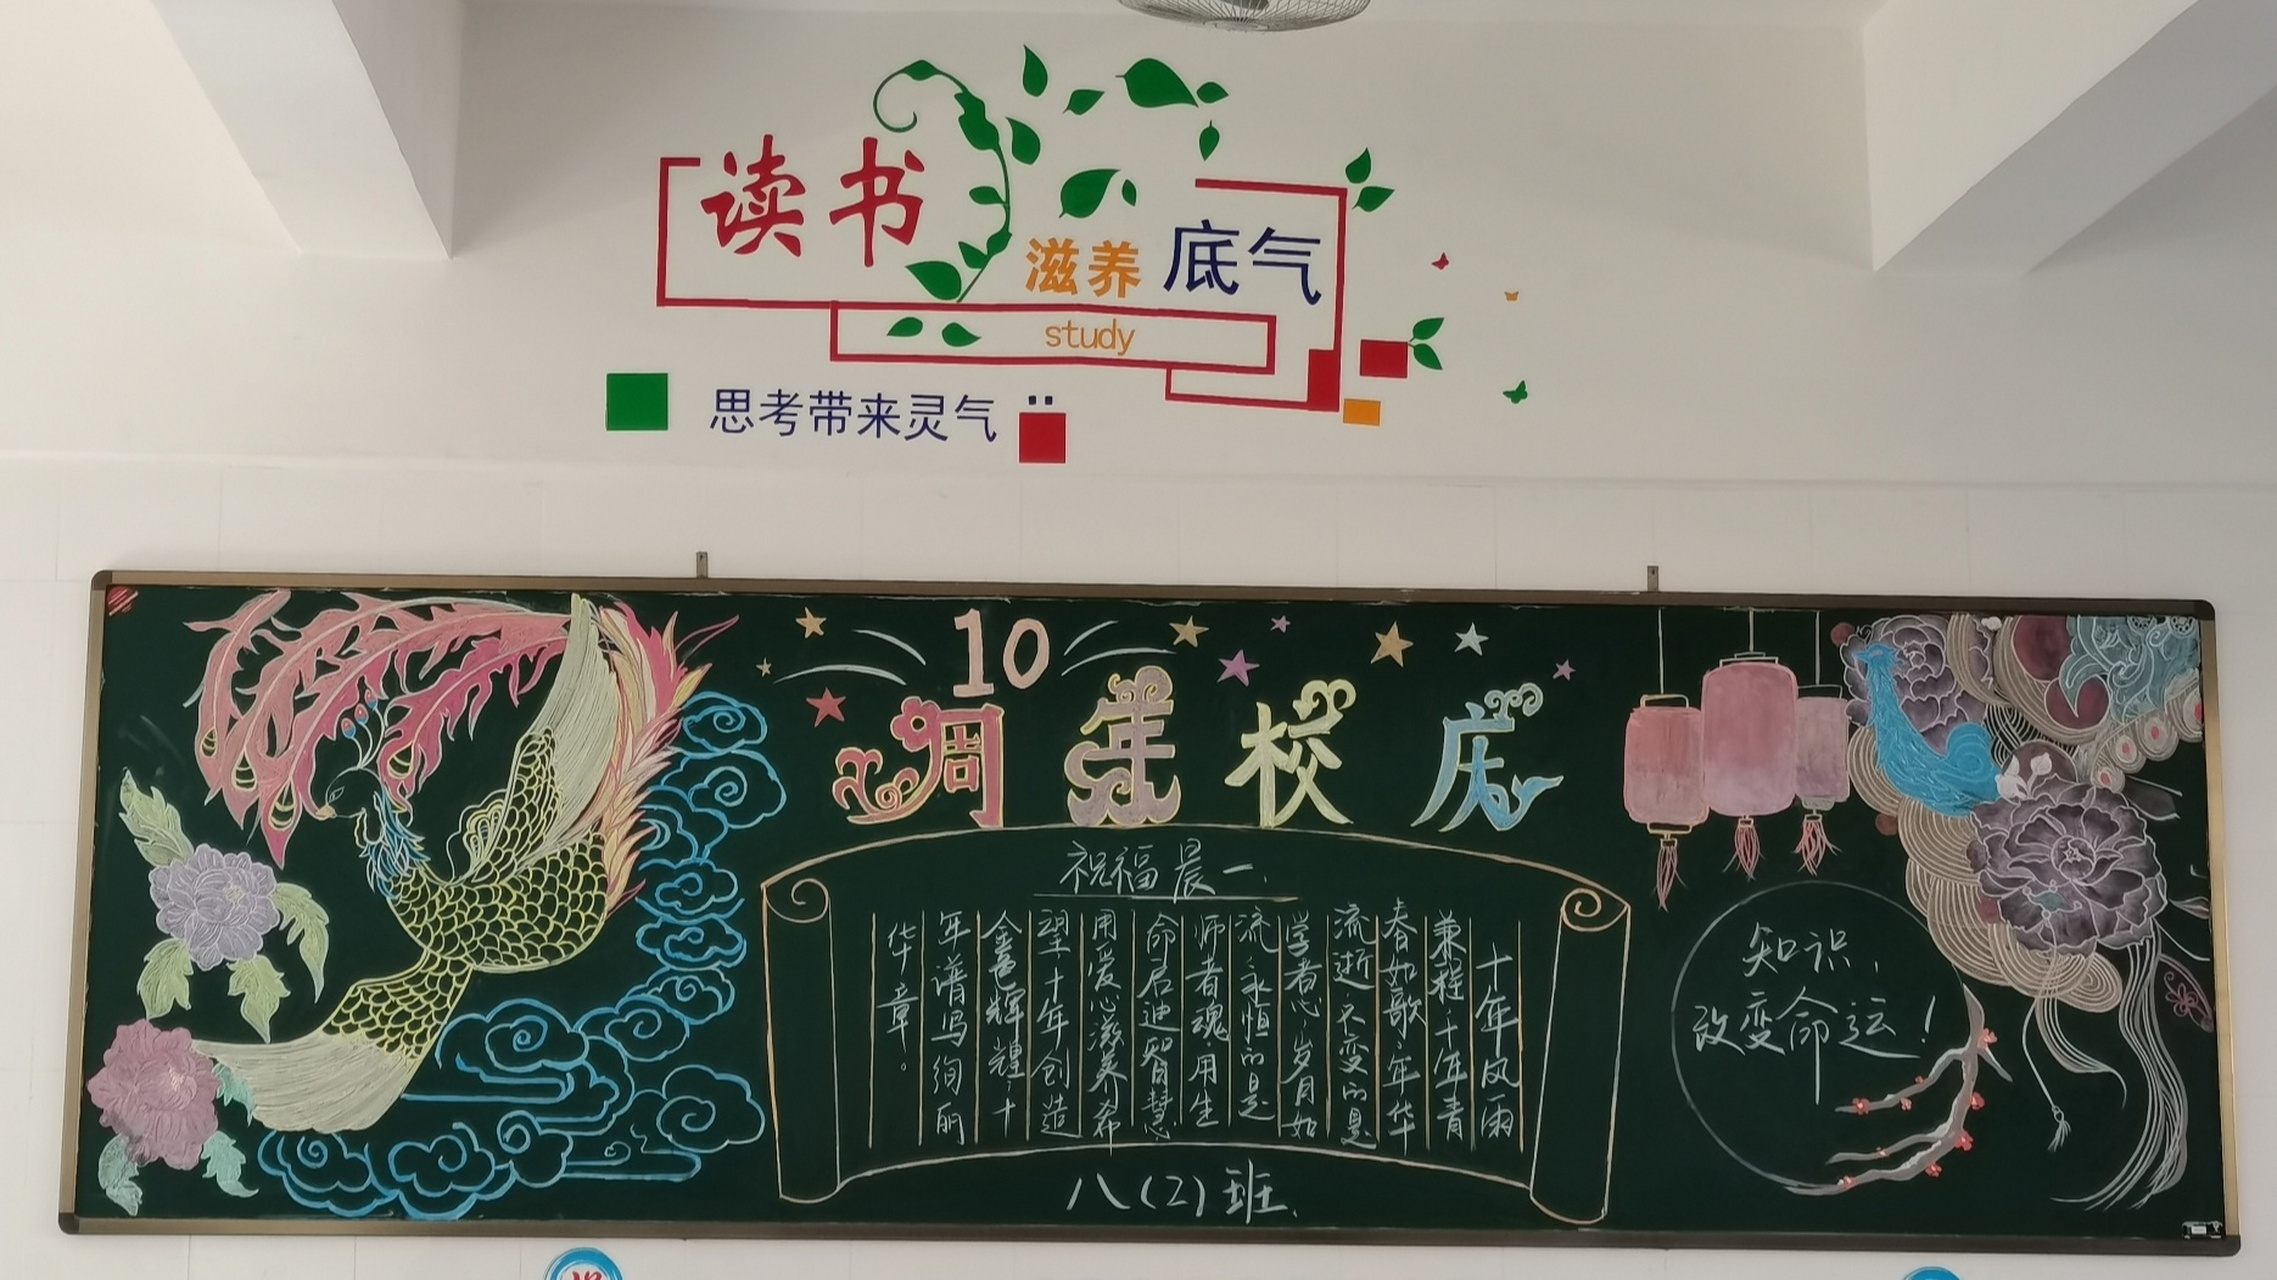 读书
滋养 底气
study
思考带来灵气
10
周年校庆
祝福晨一
十年风雨
兼程,十年青
春如歌,年华
流逝,不变的是
学者心,岁月如
流,永恒的是
师者魂,用生
命启迪智慧
用爱心滋养希
望,十年创造
金色辉煌,十
年谱写绚丽
华章。
八(2)班
知识
改变命运!